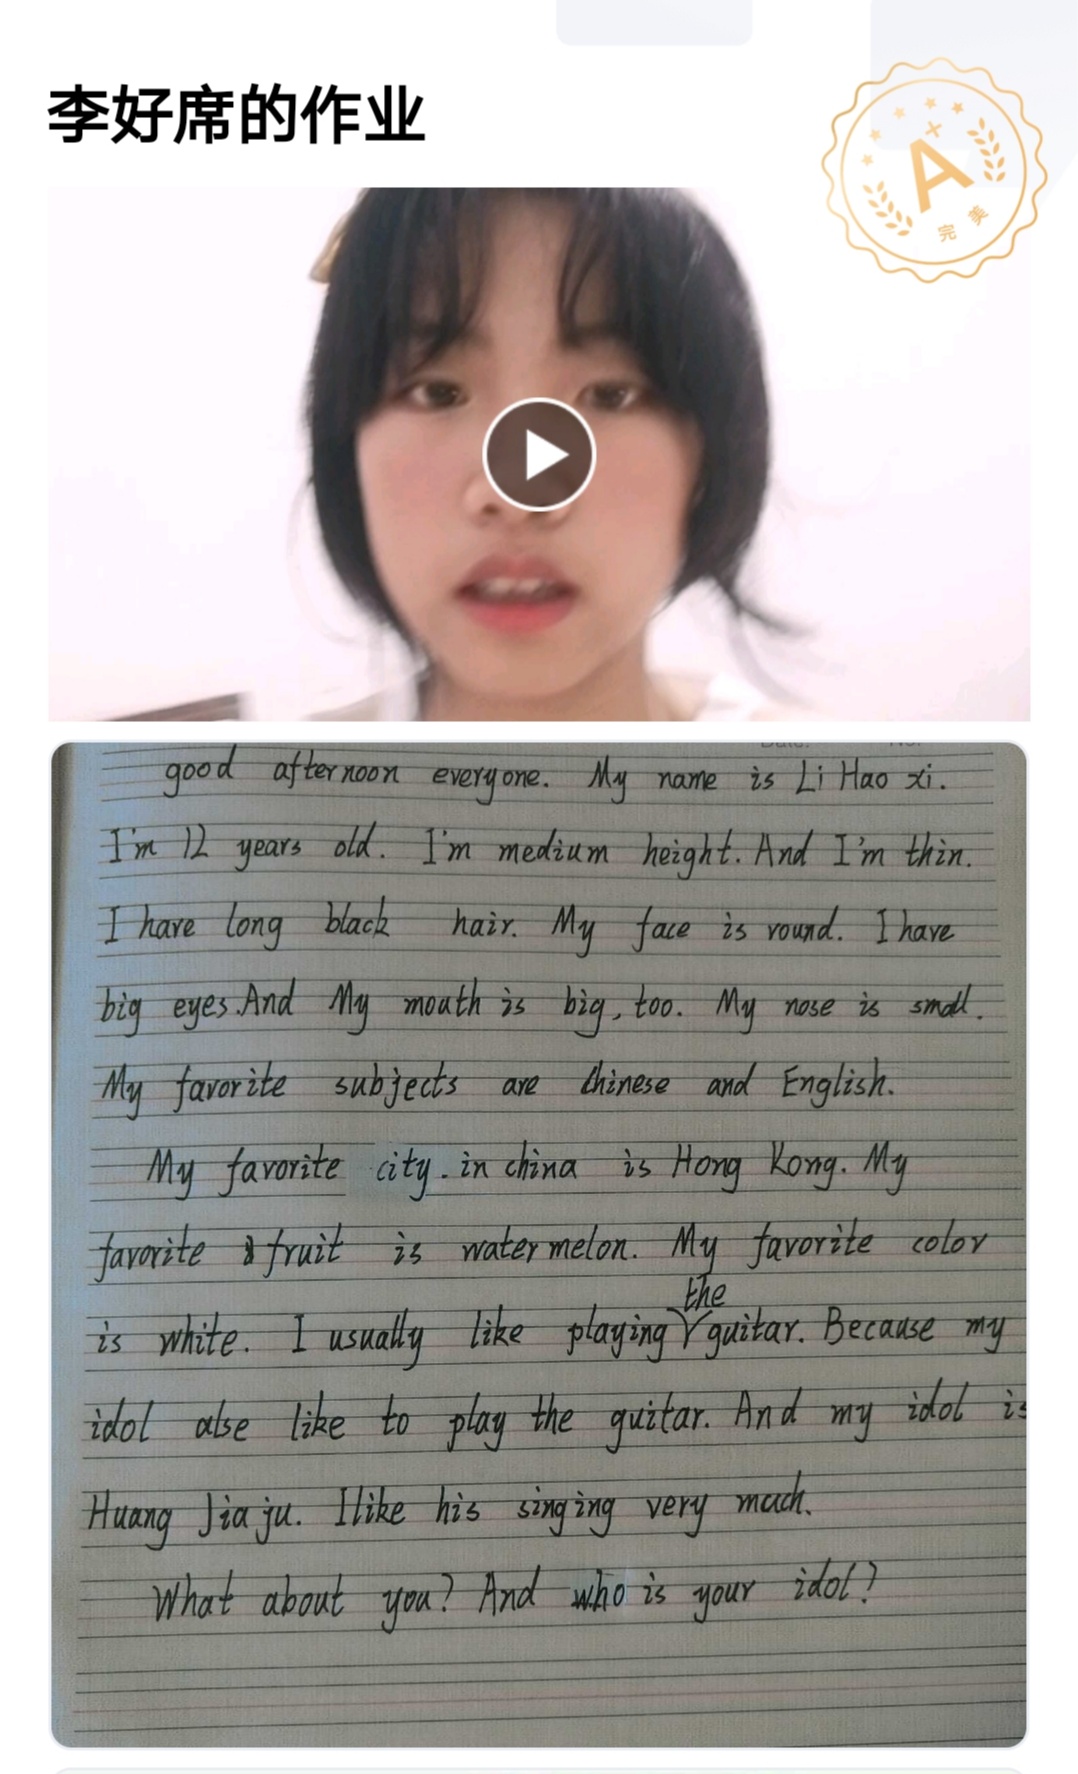 李好席的作业
A+
完美
good afternoon everyone. My name is Li Hao xi.
I'm 12 years old. I'm medium height. And I'm thin.
I have long black hair. My face is round. I have
big eyes. And My mouth is big, too. My nose is small.
My favorite subjects are Chinese and English.
My favorite city. in china is Hong Kong. My
favorite fruit is watermelon. My favorite color
the
is white. I usually like playing guitar. Because my
idol alse like to play the guitar. And my idol is
Huang Jia ju. I like his singing very much.
What about you? And who is your idol?